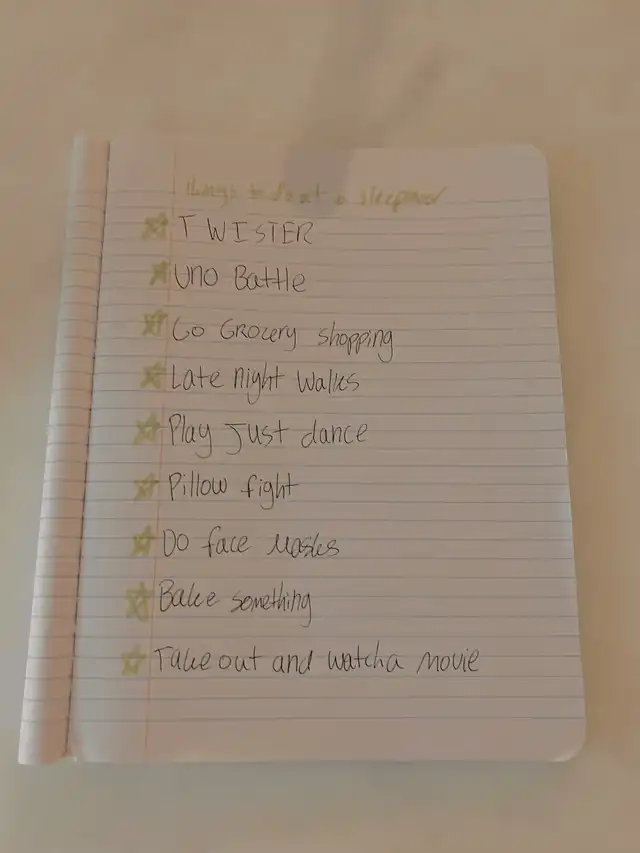 things to do at a sleepover
TWISTER
Uno Battle
Go Grocery shopping
Late night walks
Play Just dance
Pillow fight
Do face masks
Bake something
Take out and watch a movie